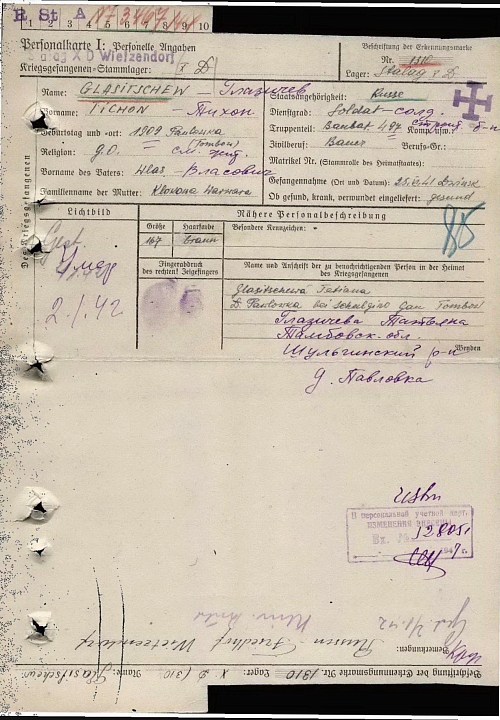 R St A
1 2 3 4 5 6 7 8 9 10
Personalkarte I: Personelle Angaben
Stalag X D Wietzendorf
Kriegsgefangenen-Stammlager: X D
Beschriftung der Erkennungsmarke
Nr. 1310
Lager: Stalag X D
Des Kriegsgefangenen
Name: GLASITSCHEW – Глазичев
Vorname: TICHON – Тихон
Geburtstag und -ort: 1909
Religion: g.o.
Vorname des Vaters: Wlas – Власович
Familienname der Mutter:
Staatsangehörigkeit: Russe
Dienstgrad: Soldat – солд.
Truppenteil: Baubat 497 Komp. usw.:
Zivilberuf: Bauer Berufs-Gr.:
Matrikel Nr. (Stammrolle des Heimatstaates):
Gefangennahme (Ort und Datum):
Ob gesund, krank, verwundet eingeliefert: gesund
Lichtbild
Nähere Personalbeschreibung
Größe Haarfarbe Besondere Kennzeichen:
167 braun
Fingerabdruck
des rechten! Zeigefingers
Name und Anschrift der zu benachrichtigenden Person in der Heimat
des Kriegsgefangenen
85
умер
2./1.42
Glasitschewa Tatiana
D. Pawlowka bei
Глазичева Татьяна
Тамбовск. обл.
Wenden
Шульгинский р-н
д. Павловка
К персональной учетной карт.
изменения внесены
Вх. № 52805
Bemerkungen:
Russen-Friedhof Wietzendorf
Beschriftung der Erkennungsmarke Nr. 1310 Lager: X D (310) Name: Glasitschew